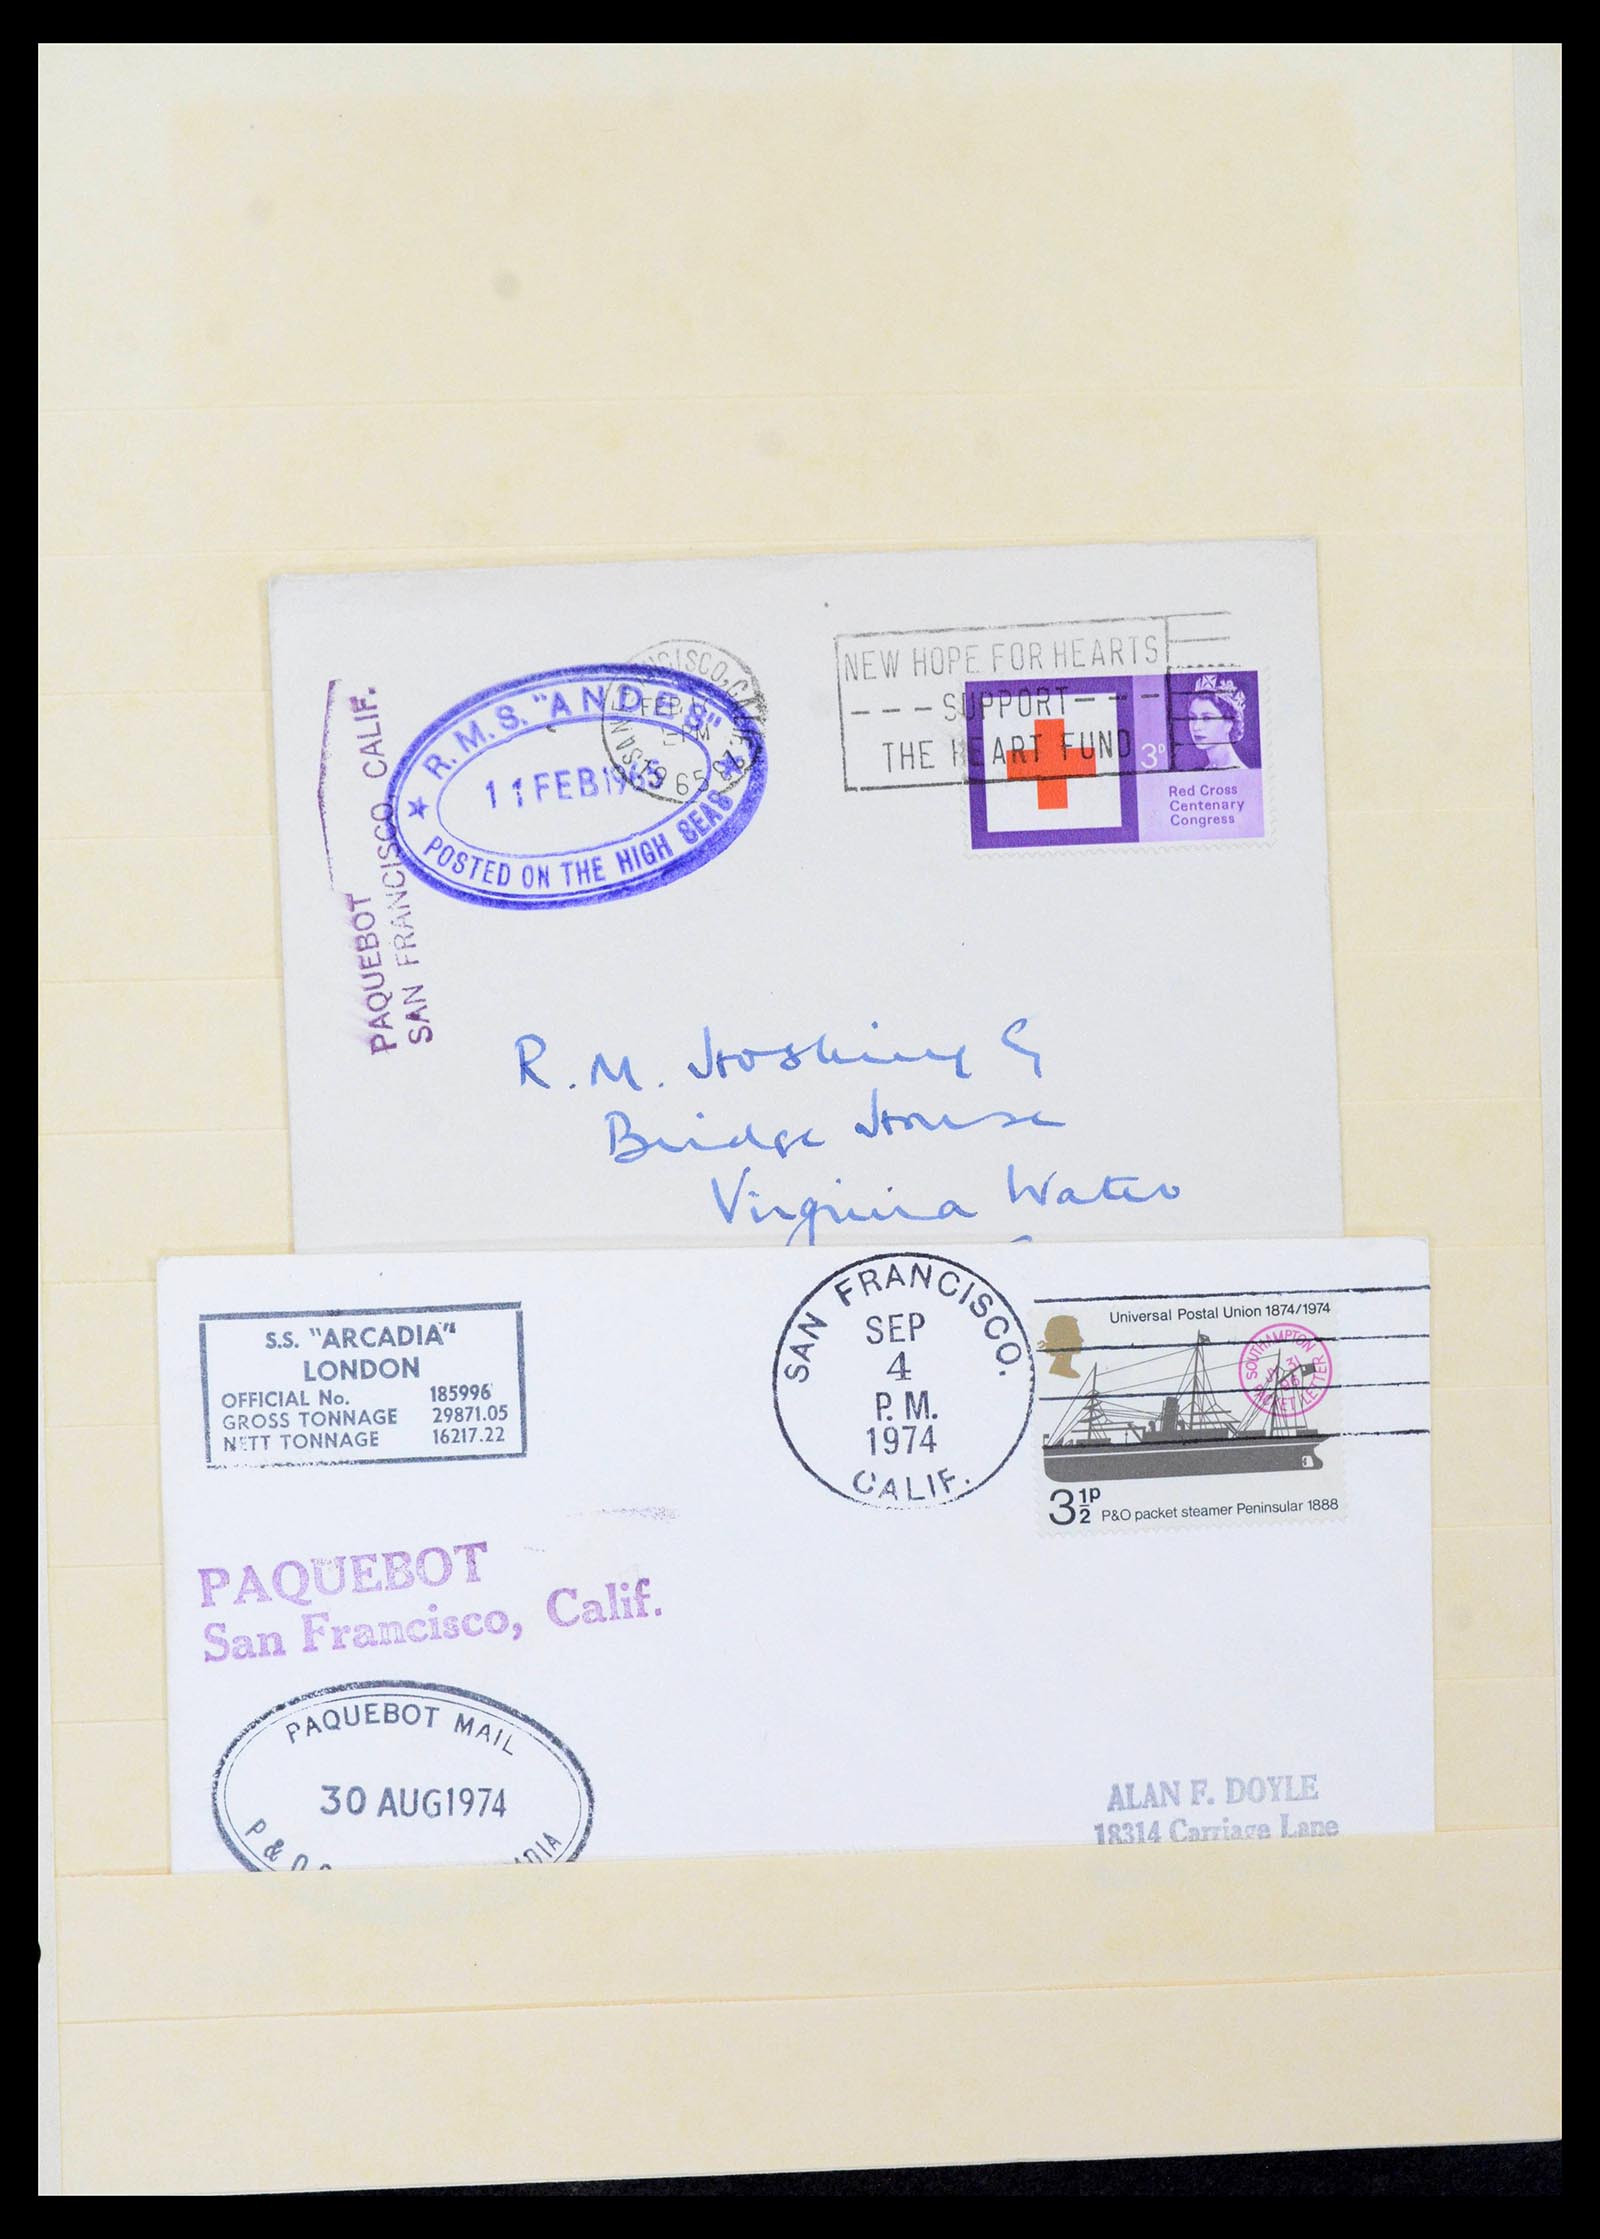 SAN FRANCISCO, CALIF.
FEB
PM
1965
R.M.S. "ANDES"
11 FEB 1965
POSTED ON THE HIGH SEAS
PAQUEBOT
SAN FRANCISCO, CALIF.
NEW HOPE FOR HEARTS
---SUPPORT---
THE HEART FUND
3D
Red Cross
Centenary
Congress
R. M. Hosking
Bridge House
Virginia Water
S.S. "ARCADIA"
LONDON
OFFICIAL No. 185996
GROSS TONNAGE 29871.05
NETT TONNAGE 16217.22
SAN FRANCISCO.
SEP
4
P.M.
1974
CALIF.
Universal Postal Union 1874/1974
SOUTHAMPTON
31
PACKET LETTER
3½P P&O packet steamer Peninsular 1888
PAQUEBOT
San Francisco, Calif.
PAQUEBOT MAIL
30 AUG 1974
P & O
ALAN F. DOYLE
18314 Carriage Lane